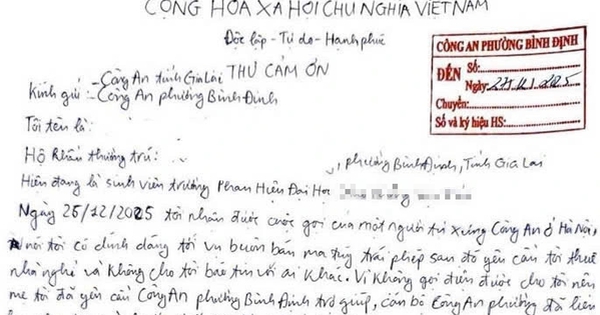 CỘNG HÒA XÃ HỘI CHỦ NGHĨA VIỆT NAM
Độc lập - Tự do - Hạnh phúc
THƯ CẢM ƠN
Kính gửi: - Công An tỉnh Gia Lai
- Công An phường Bình Định
CÔNG AN PHƯỜNG BÌNH ĐỊNH
ĐẾN
Số:
Ngày:
Chuyển:
Số và ký hiệu HS:
Tôi tên là:
Hộ khẩu thường trú: , phường Bình Định, Tỉnh Gia Lai
Hiện đang là sinh viên trường Phan Hiệu Đại Học
Ngày 25/12/2025 tôi nhận được cuộc gọi của một người tự xưng Công An ở Hà Nội,
nói tôi có dính dáng tới vụ buôn bán ma túy trái phép sau đó yêu cầu tôi thuê
nhà nghỉ và không cho tôi báo tin với ai khác. Vì không gọi điện được cho tôi nên
mẹ tôi đã yêu cầu Công An phường Bình Định trợ giúp, cán bộ Công An phường đã liên